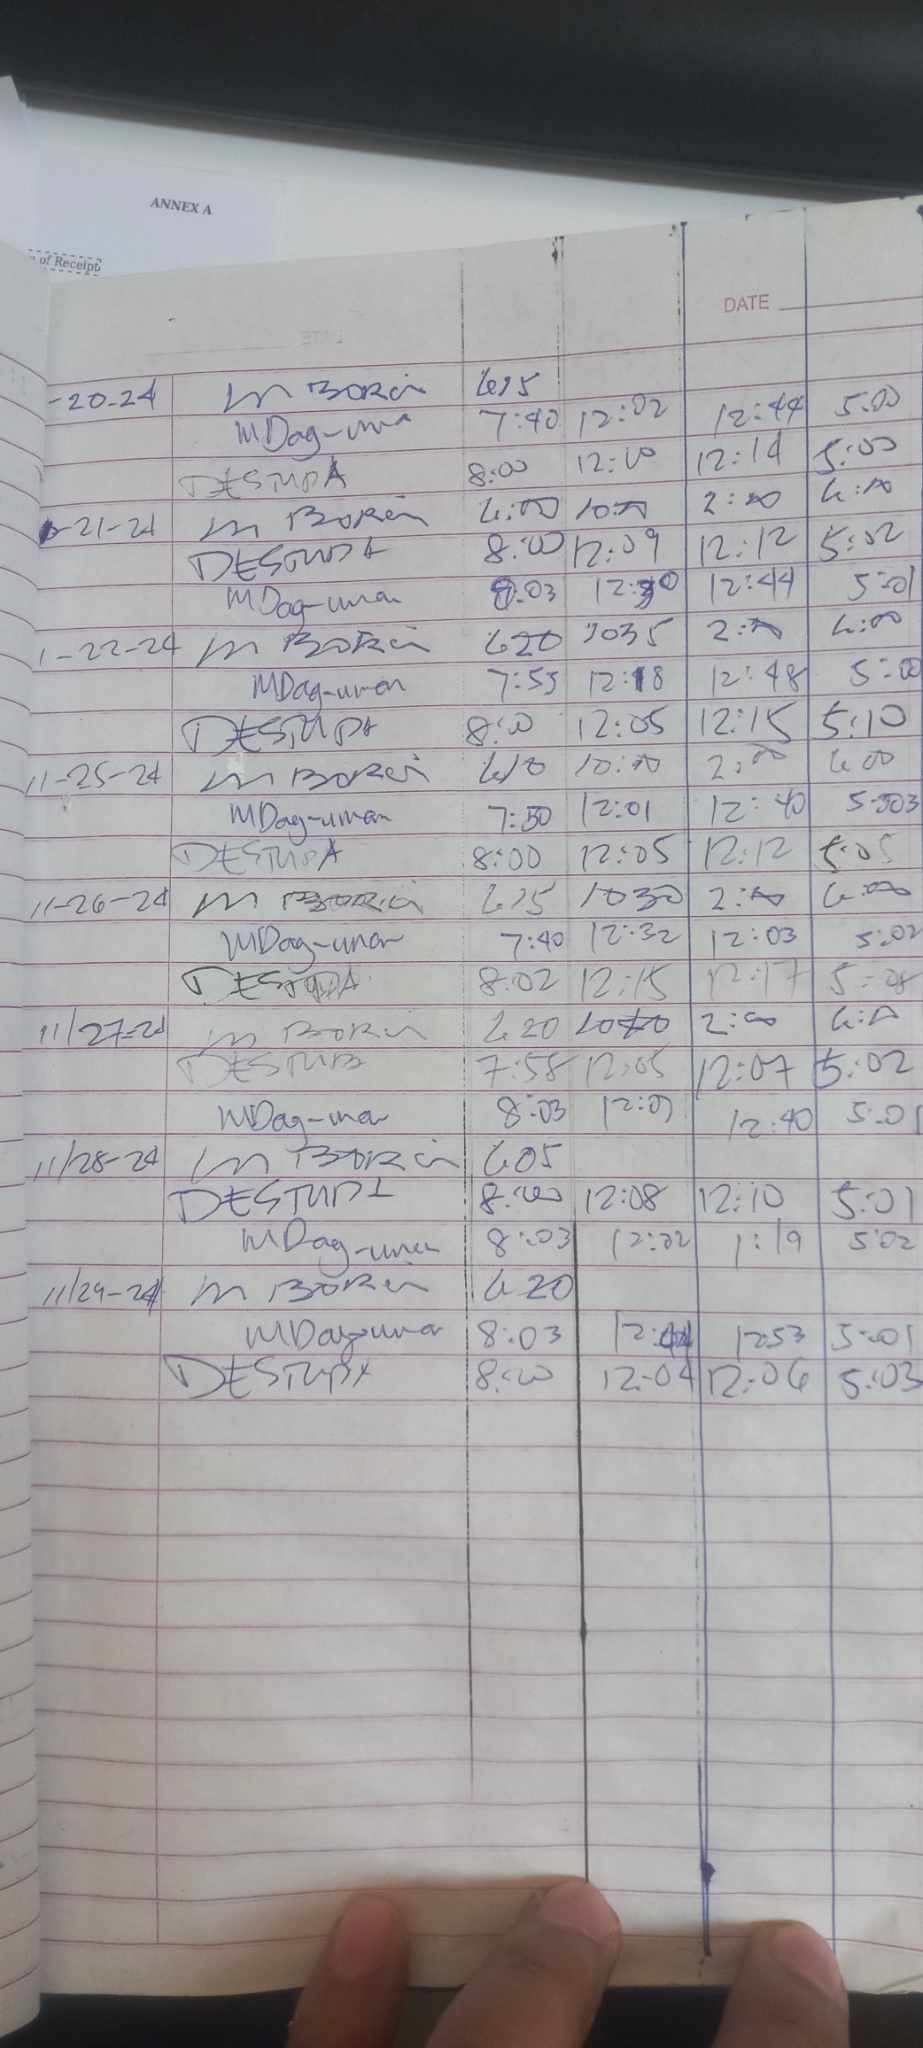 ANNEX A
of Receipt
DATE
-20-24 M Borci 6:15
MDag-uman 7:40 12:02 12:44 5:00
DESTUPA 8:00 12:10 12:14 5:00
-21-24 M Borci 6:00 10:00 2:00 6:00
DESTUPA 8:00 12:09 12:12 5:02
MDag-uman 8:03 12:30 12:44 5:01
1-22-24 M Borci 620 1035 2:00 6:00
MDag-uman 7:55 12:18 12:48 5:00
DESTUPA 8:00 12:05 12:15 5:10
11-25-24 M Borci 610 10:00 2:00 6:00
MDag-uman 7:50 12:01 12:40 5:03
DESTUPA 8:00 12:05 12:12 5:05
11-26-24 M Borci 615 1030 2:00 6:00
MDag-uman 7:40 12:32 12:03 5:02
DESTUPA 8:02 12:15 12:17 5:08
11/27-24 M Borci 620 2:00 6:00
DESTUPA 7:58 12:05 12:07 5:02
MDag-uman 8:03 12:01 12:40 5:01
11/28-24 M Borci 605
DESTUPA 8:00 12:08 12:10 5:01
MDag-uman 8:03 12:22 1:19 5:02
11/29-24 M Borci 620
MDag-uman 8:03 12:53 5:01
DESTUPA 8:00 12:04 12:06 5:03